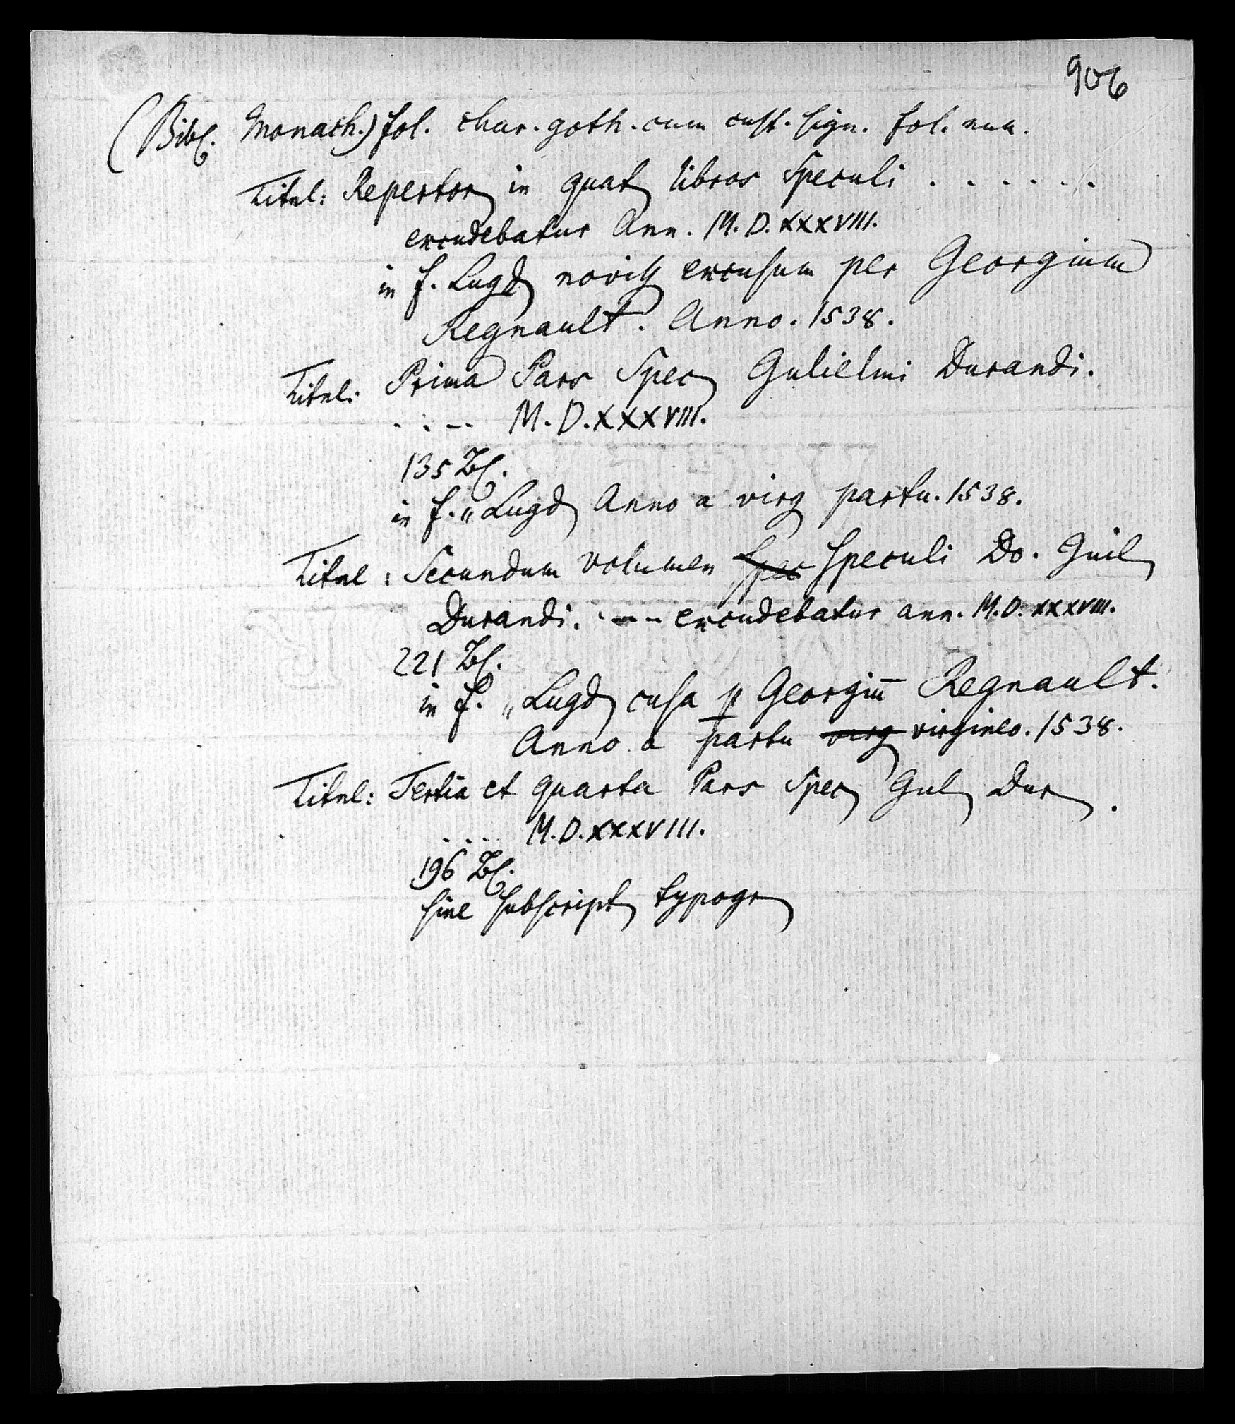 906
(Bibl. Monach.) fol. char. goth. cum cust. sign. fol. num.
Titel: Repertor in quat libros Speculi . . . . . .
excudebatur Ann. M.D.XXXVIII.
in f. Lugd noviss excusum per Georgium
Regnault. Anno. 1538.
Titel: Prima Pars Spec Gulielmi Durandi.
. . . . M.D.XXXVIII.
135 Bl.
in f. „Lugd Anno a virg partu. 1538.
Titel: Secundum volumen Spec Speculi Do. Guil
Durandi. . – – excudebatur ann. M.D.XXXVIII.
221 Bl.
in f. „Lugd cusa p Georgiū Regnault.
Anno a partu virg virgineo. 1538.
Titel: Tertia et quarta Pars Spec Gul Dur .
. . . . M.D.XXXVIII.
196 Bl.
sine subscript typogr